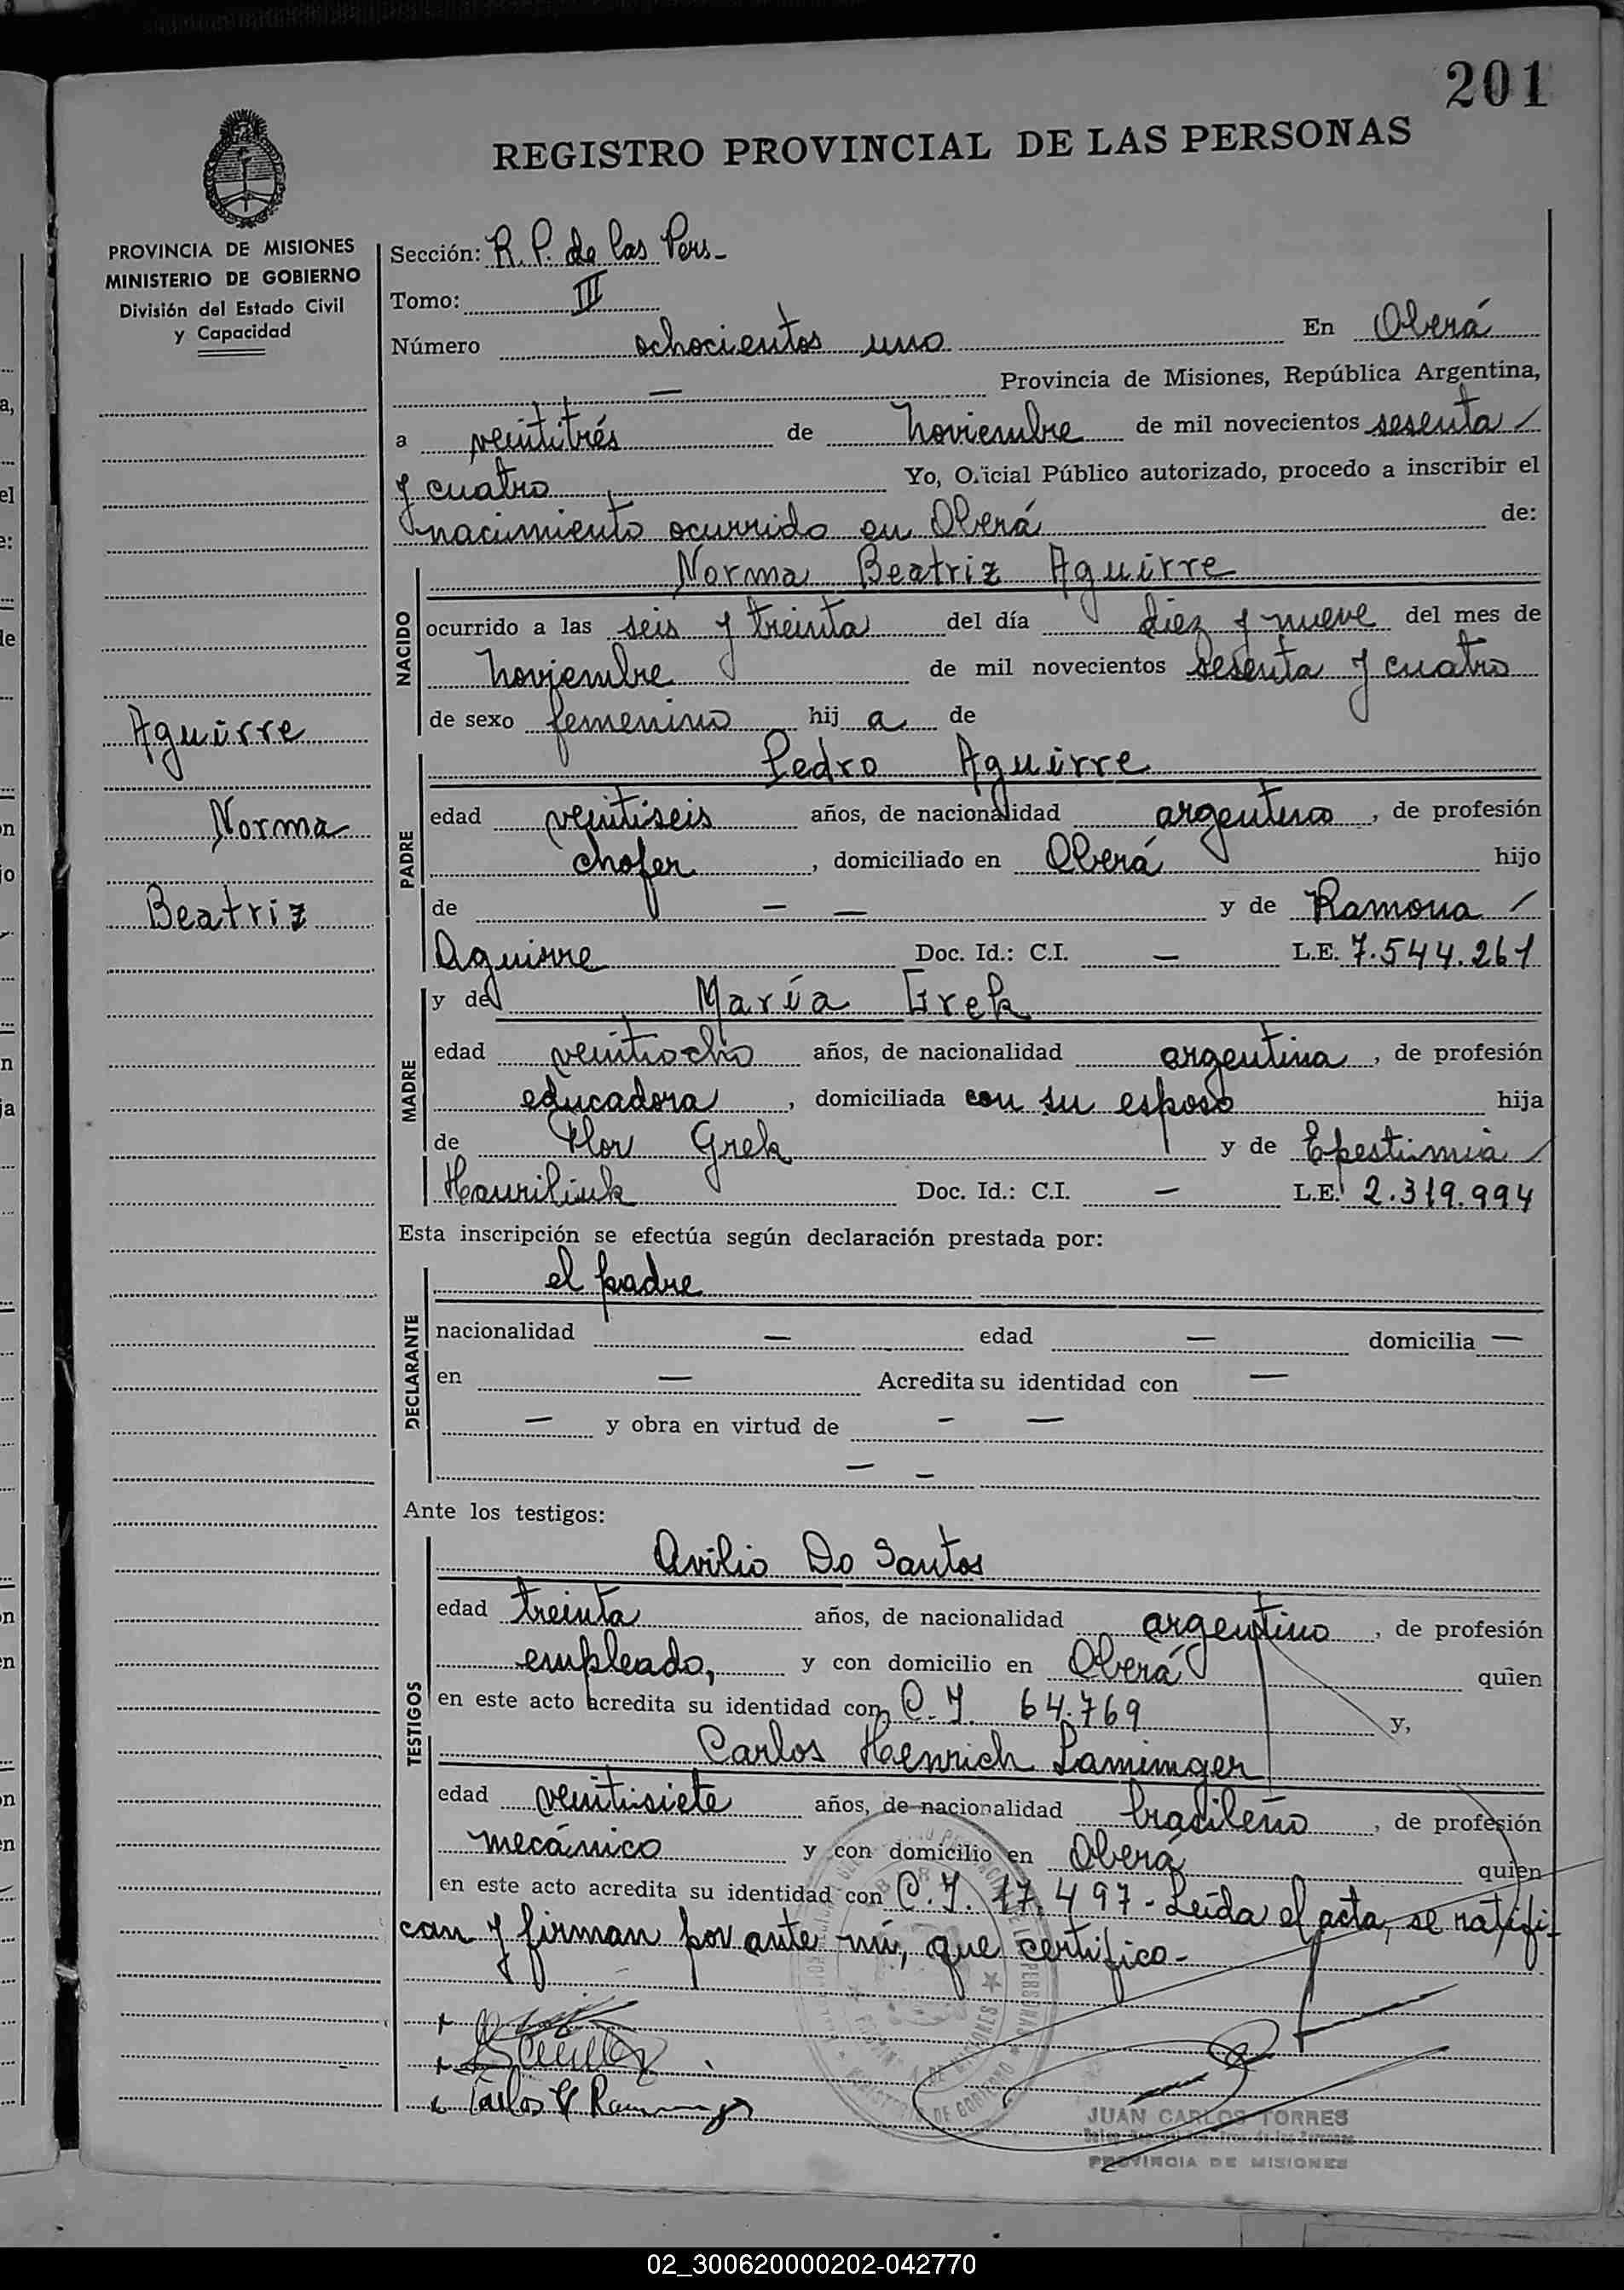 201
REGISTRO PROVINCIAL DE LAS PERSONAS
PROVINCIA DE MISIONES
MINISTERIO DE GOBIERNO
División del Estado Civil
y Capacidad
Aguirre
Norma
Beatriz
Sección: R. P. de las Pers-
Tomo: III
Número ochocientos uno En Oberá
— Provincia de Misiones, República Argentina,
a veintitrés de noviembre de mil novecientos sesenta
y cuatro Yo, Oficial Público autorizado, procedo a inscribir el
nacimiento ocurrido en Oberá de:
NACIDO
Norma Beatriz Aguirre
ocurrido a las seis y treinta del día diez y nueve del mes de
noviembre de mil novecientos sesenta y cuatro
de sexo femenino hij a de
PADRE
Pedro Aguirre
edad veintiseis años, de nacionalidad argentino, de profesión
chofer, domiciliado en Oberá hijo
de — — y de Ramona
Aguirre Doc. Id.: C.I. — L.E. 7.544.261
MADRE
y de María Grek
edad veintiocho años, de nacionalidad argentina, de profesión
educadora, domiciliada con su esposo hija
de Flor Grek y de
Doc. Id.: C.I. — L.E. 2.319.994
Esta inscripción se efectúa según declaración prestada por:
DECLARANTE
el padre
nacionalidad — edad — domicilia —
en — Acredita su identidad con —
— y obra en virtud de - —
— -
Ante los testigos:
TESTIGOS
Avilio Do Santos
edad treinta años, de nacionalidad argentino, de profesión
empleado, y con domicilio en Oberá quien
en este acto acredita su identidad con C.I. 64.769 y,
Carlos Henrich
edad veintisiete años, de nacionalidad brasileño, de profesión
mecánico y con domicilio en Oberá quien
en este acto acredita su identidad con C.I. 17.497- Leída el acta, se ratifi-
can y firman por ante mí, que certifico-
Carlos
JUAN CARLOS TORRES
PROVINCIA DE MISIONES
02_300620000202-042770